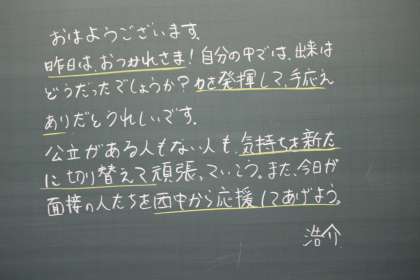 おはようございます。
昨日は、おつかれさま！自分の中では、出来は
どうだったでしょうか？力を発揮して、手応え
ありだとうれしいです。
公立がある人もない人も、気持ちを新た
に切り替えて頑張っていこう。また、今日が
面接の人たちを西中から応援してあげよう。
浩介